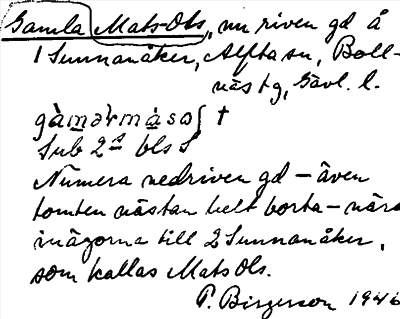 Gamla Mats-Ols, nu riven gd å
1 Sunnanåker, Alfta sn, Boll-
näs tg, Gävl. l.
†
Sub 2 bls S
Numera nedriven gd – även
tomten nästan helt borta – nära
inägorna till 2 Sunnanåker,
som kallas Mats Ols.
P. Birgerson 1946